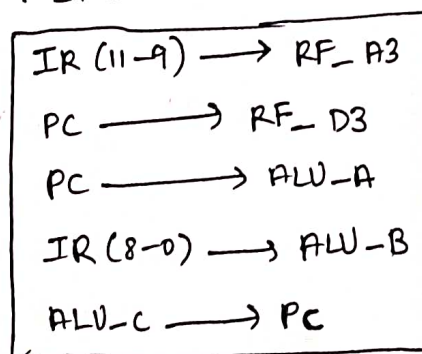 IR (11-9) → RF_A3
PC → RF_D3
PC → ALU-A
IR (8-0) → ALU-B
ALU-C → PC